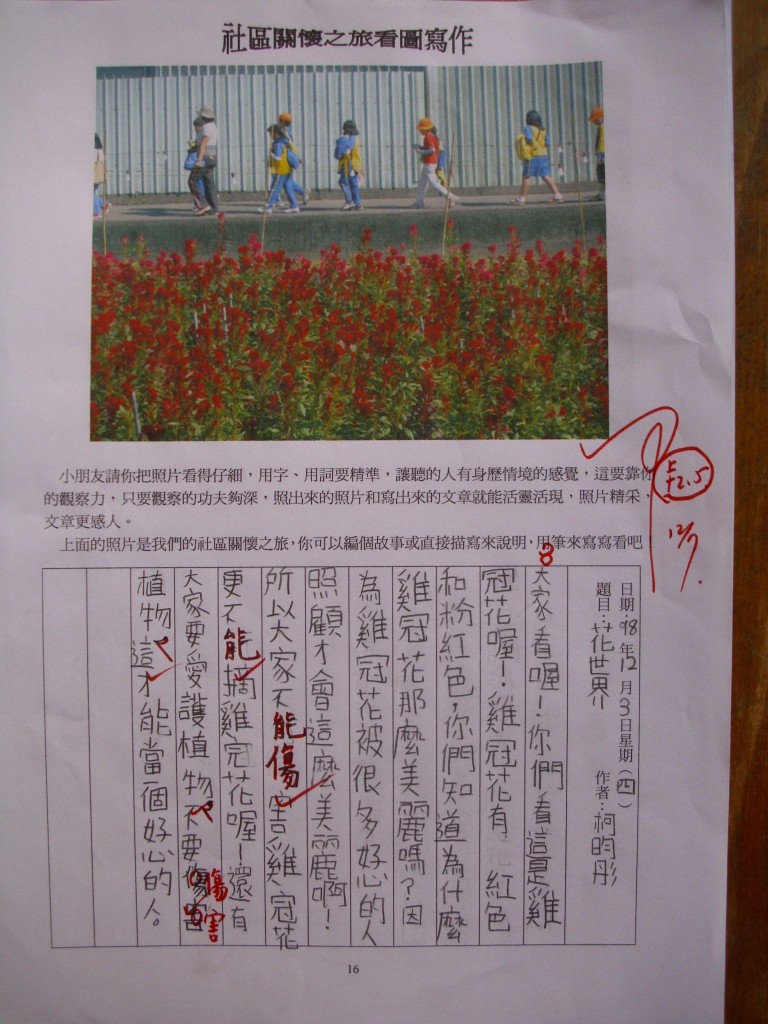 社區關懷之旅看圖寫作
小朋友請你把照片看得仔細，用字、用詞要精準，讓聽的人有身歷情境的感覺，這要靠你
的觀察力，只要觀察的功夫夠深，照出來的照片和寫出來的文章就能活靈活現，照片精采，
文章更感人。
上面的照片是我們的社區關懷之旅，你可以編個故事或直接描寫來說明，用筆來寫寫看吧！
上2.5
12/7.
日期：98年12月3日星期（四）
題目：花世界 作者：柯昀彤
8
大家看喔！你們看這是雞
冠花喔！雞冠花有紅色
和粉紅色，你們知道為什麼
雞冠花那麼美麗嗎？因
為雞冠花被很多好心的人
照顧才會這麼美麗啊！
所以大家不能傷害雞冠花
更不能摘雞冠花喔！還有
大家要愛護植物，不要傷害
傷害
植物，這才能當一個好心的人。
16